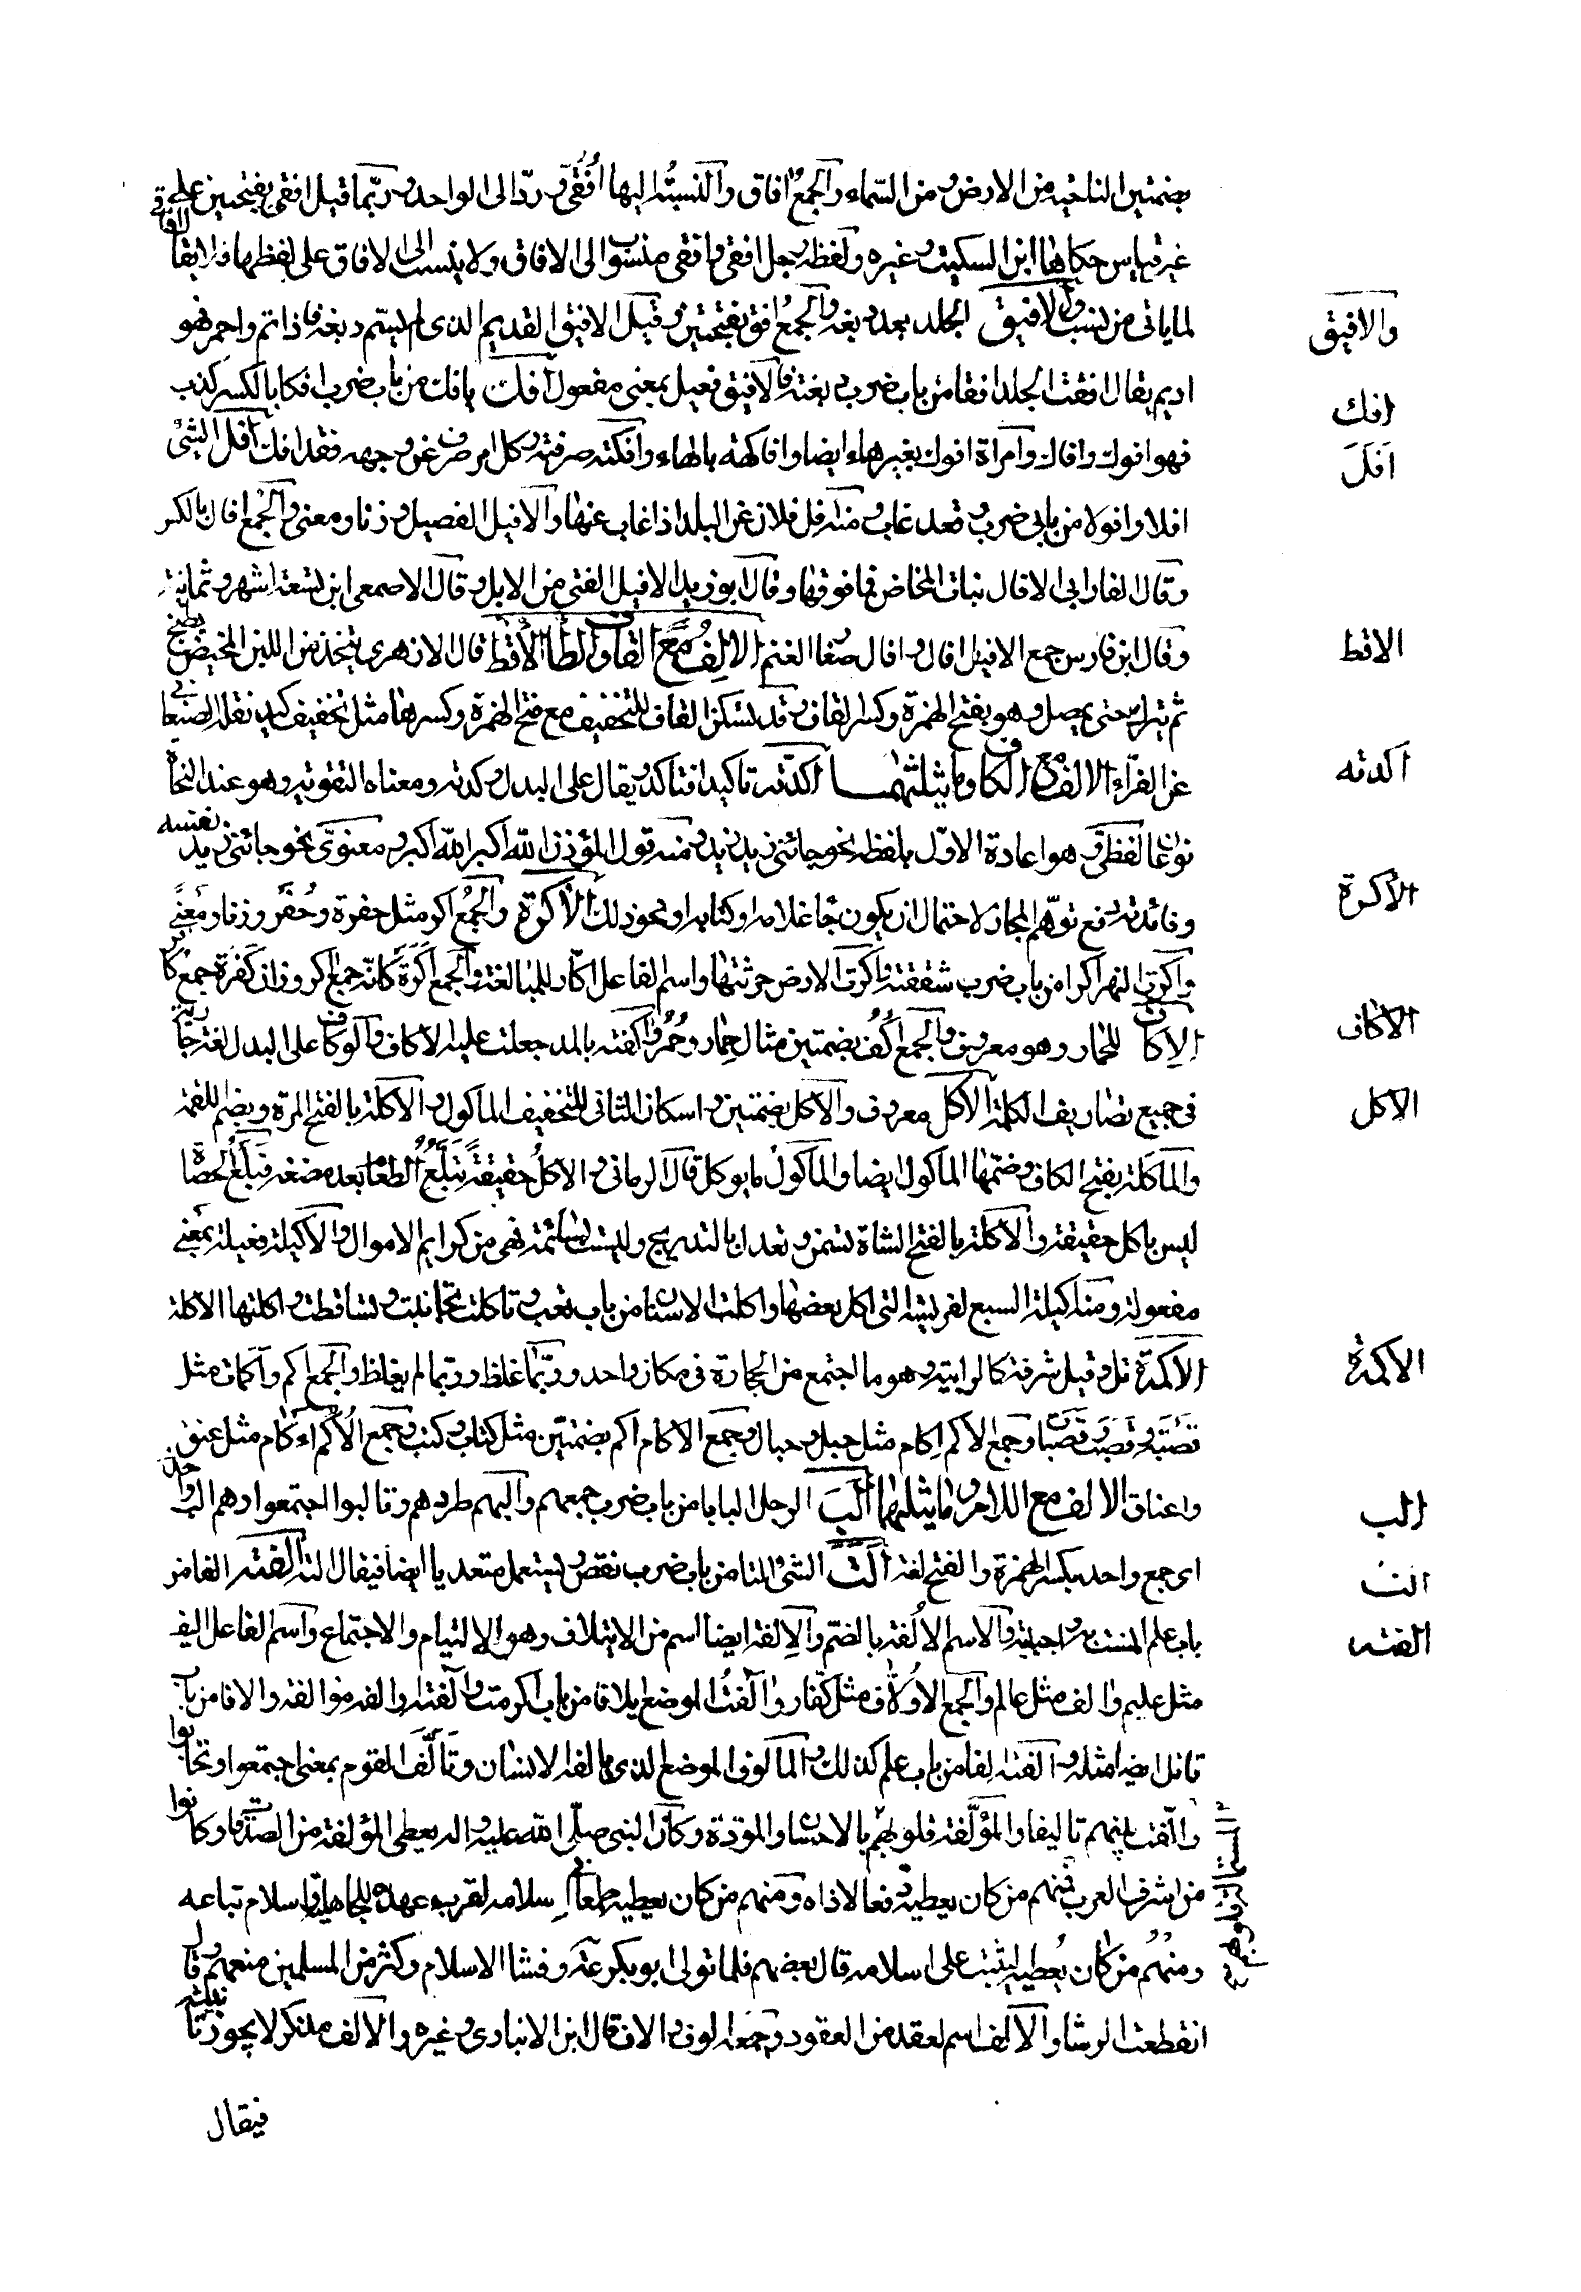 بضمتين الناحية من الارض ومن السّماء والجمع افاق والنسبة اليها اُفُقىّ ردّا الى الواحد وربّما قيل افقى بفتحتين على
غير قياس حكاها ابن السكيت وغيره ولفظه رجل افقى وافقى منسوب الى الافاق ولا ينسب الى الافاق على لفظها فلا يقال افاقى
لما ياتى من لنسب والافيق الجلد بعد دبغه والجمع افق بفتحتين وقيل الافيق القديم الذى لم يستم دبغه فاذا تم واحمر فهو
والافيق
اديم يقال افقت الجلد افقا من باب ضرب دبغته فالافيق فعيل بمعنى مفعول افك يافك من باب ضرب افكا بالكسر كذب
افك
فهو افوك وافاك وامراة افوك بغير هاء ايضا وافاكة بالهاء وافكته صرفته وكل امر صرف عن وجهه فقد افك افل الشئ
اَفَلَ
افلا وافولا من بابى ضرب وقعد غاب ومنه افل فلان عن البلد اذا غاب عنها والافيل الفصيل وزنا ومعنى والجمع افال بالكسر
وقال الفارابى الافال بنات المخاض فما فوقها وقال ابو زيد الافيل الفتى من الابل وقال الاصمعى ابن تسعة اشهر وثمانية
وقال ابن فارس جمع الافيل افال وافال صغار الغنم الالف مع القاف والطا الاقط قال الازهرى يتخذ من اللبن المخيض يطبخ
الاقط
ثم يترك حتى يمصل وهو بفتح الهمزة وكسر القاف وقد تسكن القاف للتخفيف مع فتح الهمزة وكسرها مثل تخفيف كبد نقله الصغانى
عن الفرّاء الالف مع الكاف وما يثلثهما اكدته تاكيدا فتاكد ويقال على البدل وكدته ومعناه التقوية وهو عند النحاة
اكدته
نوعان لفظىّ وهو اعادة الاوّل بلفظه نحو جائنى زيد زيد ومنه قول المؤذن الله اكبر الله اكبر ومعنوىّ نحو جائنى زيد نفسه
وفائدته رفع توهّم المجاز لاحتمال ان يكون جا غلامه او كتابه او نحو ذلك الاكرة والجمع اكر مثل حفرة وحُفَر وزنا ومعنًى
الاكرة
واكرت النهر اكرا من باب ضرب شققته واكرت الارض حرثتها واسم الفاعل اكّار للمبالغة والجمع اكَرَة كانّه جمع اكر وزان كفرة جمع كافر
الاكاف للحمار وهو معروف والجمع اُكُف بضمتين مثال حِمار وحُمُر واكفته بالمد جعلت عليه الاكاف والوكاف على البدل لغة جارية
الاكاف
فى جميع تصاريف الكلمة الاكل معروف والاكل بضمتين واسكان الثانى للتخفيف الماكول والاكلة بالفتح المرة وبضم اللقمة
الاكل
والماكلة بفتح الكاف وضمّها الماكول ايضا والماكول ما يوكل قال الرمانى والاكلُ حقيقةً تَبَلُّعُ الطعام بعد مضغه فبلع الحصاة
ليس باكل حقيقة والاكلة بالفتح الشاة تسمن وتعدل بالتدريج وليست بسائمة فهى من كرايم الاموال والاكيلة فعيلة بمعنى
مفعولة ومنه اكيلة السبع لفريسته التى اكل بعضها واكلت الاسنان من باب تعب وتاكلت تحاتت وتساقطت واكلتها الاكلة
الاكمة تل وقيل شرفة كالرابية وهو ما اجتمع من الحجارة فى مكان واحد وربّما غلظ وربّما لم يغلظ والجمع اكم واكمات مثل
الاكمة
قصَبَة وقَصَب وقَصَبات وجمع الاكم اكام مثل جبل وجبال وجمع الاكام اكم بضمتين مثل كتاب وكتب وجمع الاُكُم اكام مثل عنق
واعناق الالف مع اللام وما يثلثهما اَلَبَ الرجل البا من باب ضرب جمعهم والبهم طردهم وتالبوا اجتمعوا وهم الب واحد
الب
اى جمع واحد بكسر الهمزة والفتح لغة الَتَ الشئ التا من باب ضرب نقص ويستعمل متعديا ايضا فيقال الته الفته الفا من
الت
باب علم انست به واحببته والاسم الاُلفة بالضم والاِلفة ايضا اسم من الايتلاف وهو الالتيام والاجتماع واسم الفاعل اليف
الفته
مثل عليم والف مثل عالم والجمع الاُلّاف مثل كفّار والفتُ الموضع ايلافا من باب اكرمت والفته اوالفه موالفة والافا من باب
قاتل ايضا مثله والفته الفا من باب علم كذلك والمالوف الموضع الذى يالفه الانسان وتَاَلَّفَ القوم بمعنى اجتمعوا وتحابوا
والّفت بينهم تاليفا والمؤلّفة قلوبهم بالاحسان والمودّة وكان النبى صلّى الله عليه واله يعطى المؤلفة من الصدقات وكانوا
من اشرف العرب فمنهم من كان يعطيه دفعا لاذاه ومنهم من كان يعطيه طمعا فى اسلامه لقرب عهده بالجاهلية واسلام تباعه
ومنهُم من كان يُعطيه ليثبت على اسلامه قال بعضهم فلما تولى ابو بكر عنه وفشا الاسلام وكثر من المسلمين منعهم وقال
انقطعت الرشا والالف اسم لعقد من العقود وجمعه الوف والاف قال ابن الانبارى وغيره والالف مذكر لا يجوز تانيثه
فيقال